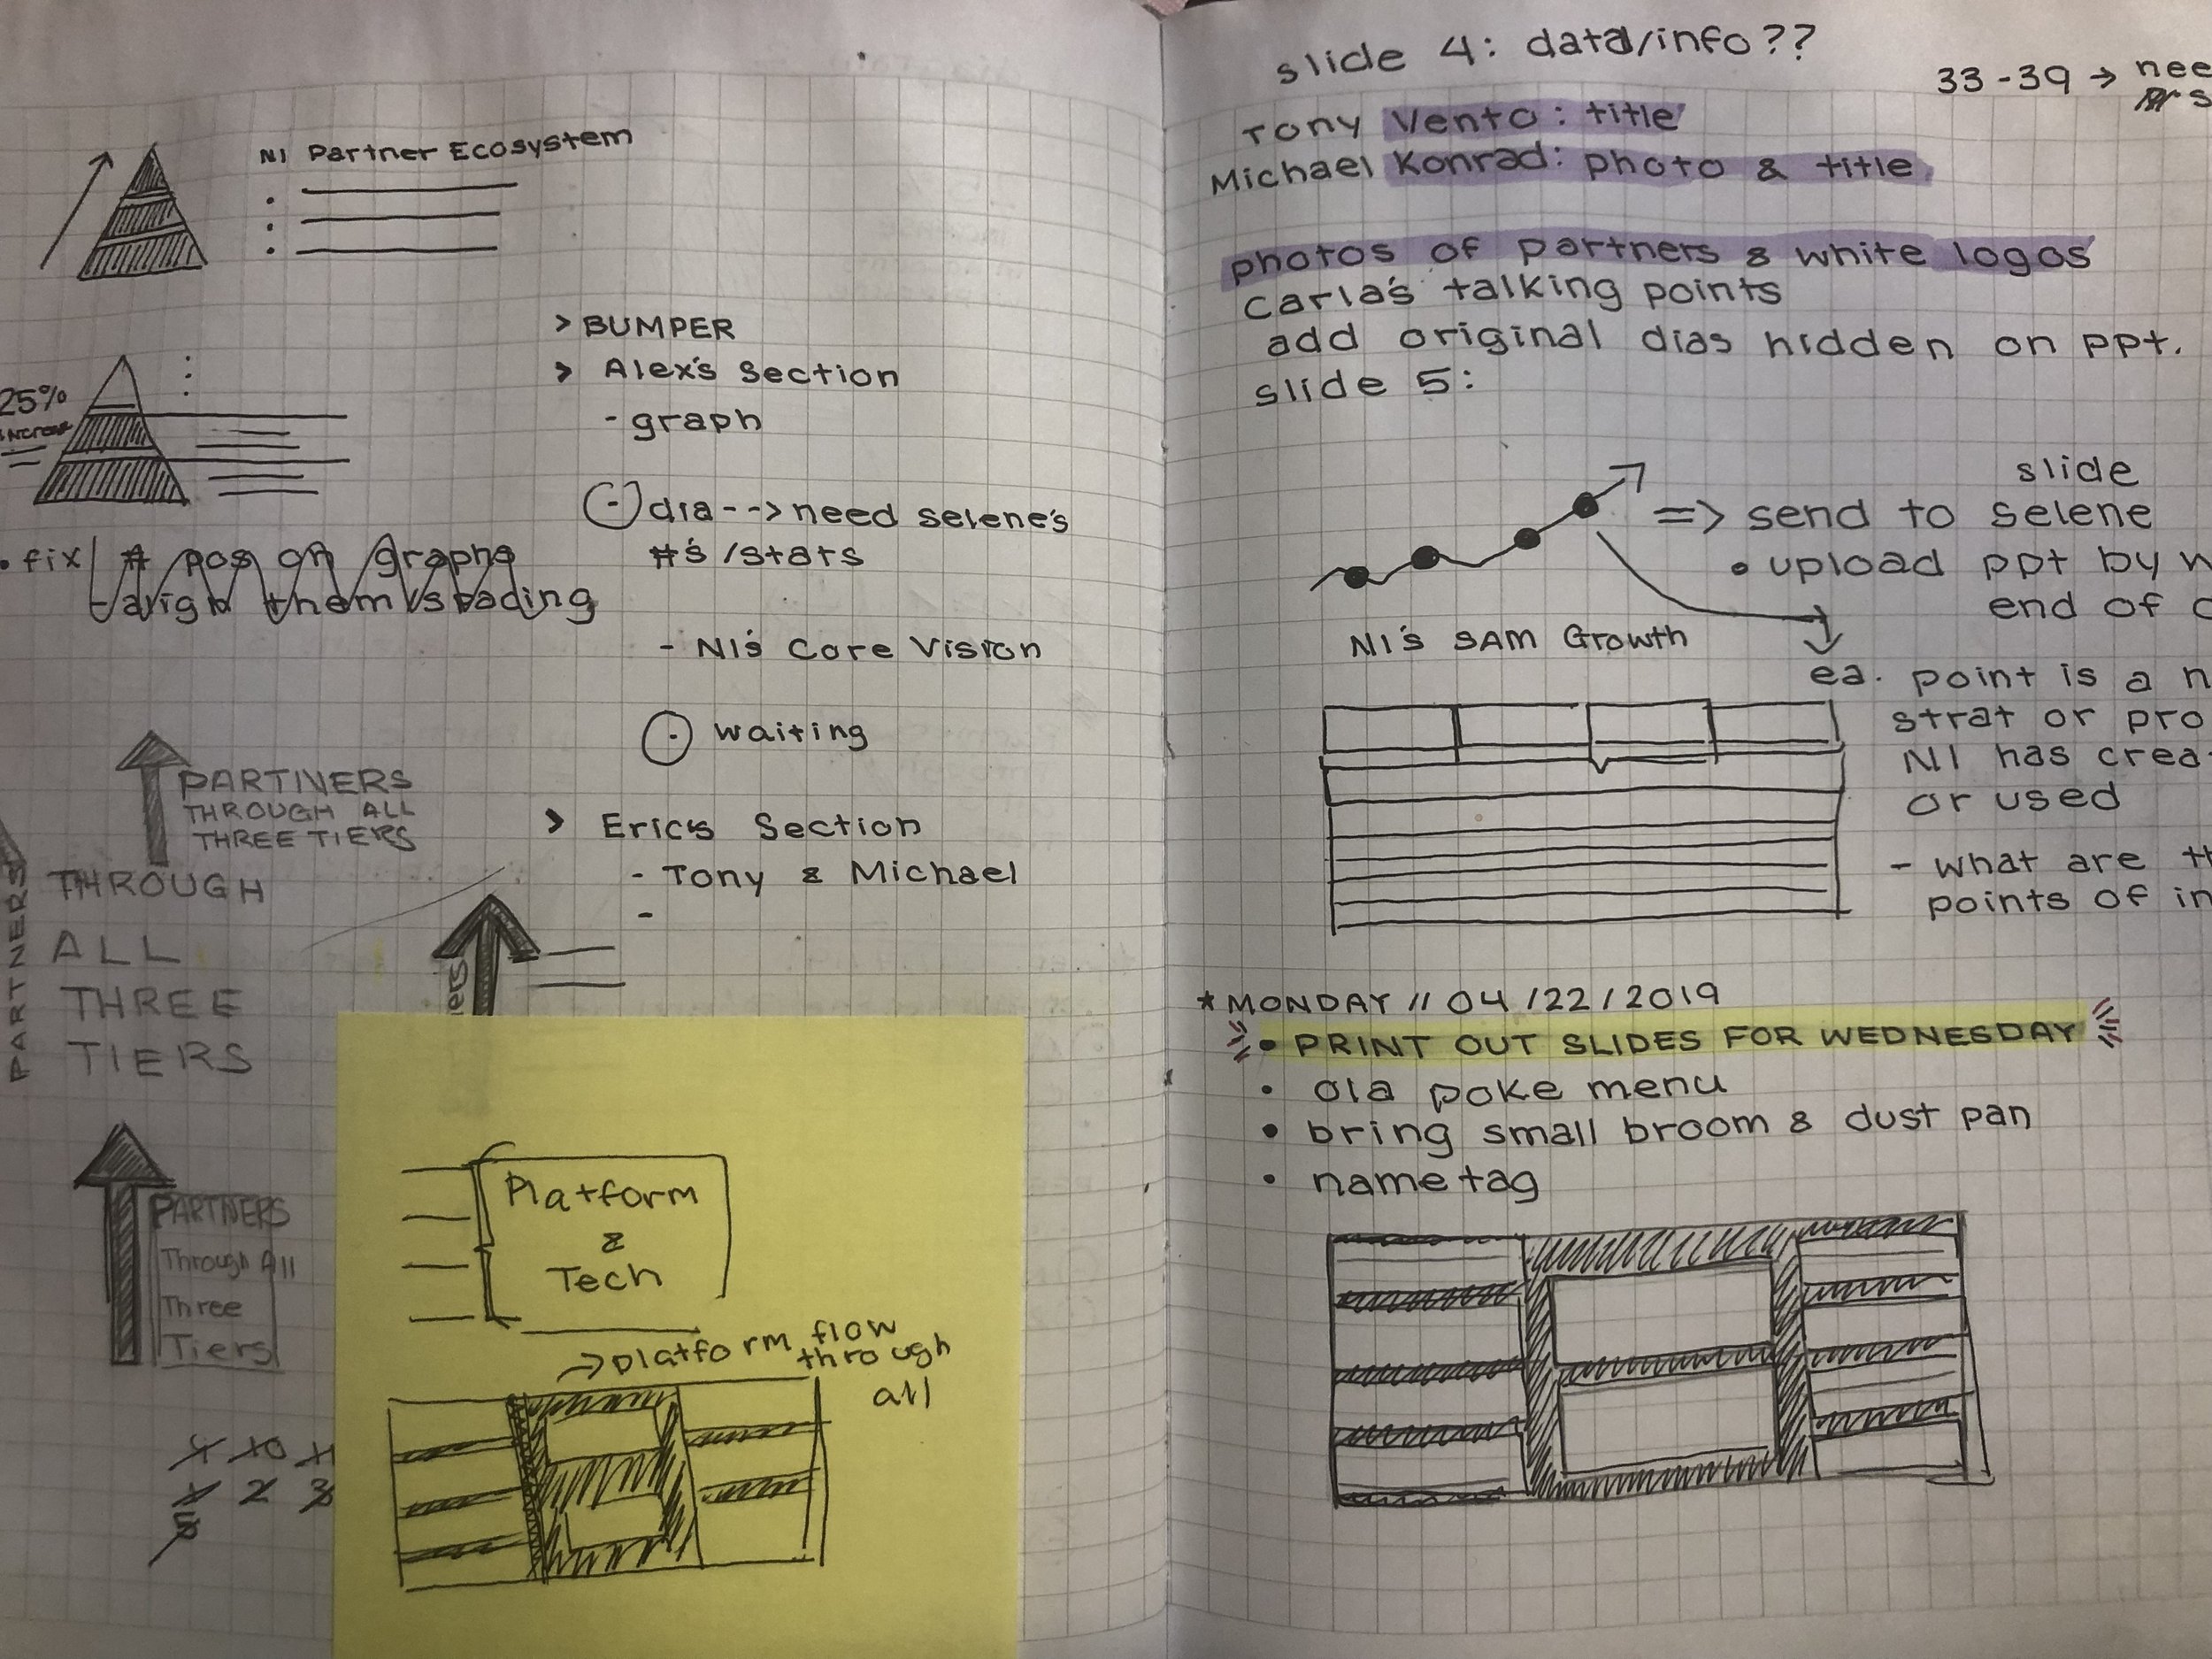 NI Partner Ecosystem
25%
> BUMPER
> Alex's Section
- graph
dia --> need selene's
#'s /stats
• fix # pos on graphs
align them/spacing
- NI's Core Vision
waiting
PARTNERS
THROUGH ALL
THREE TIERS
> Eric's Section
- Tony & Michael
-
PARTNERS
THROUGH
ALL
THREE
TIERS
PARTNERS
Through All
Three
Tiers
10
1 2 3
5
Platform
&
Tech
→ platform flow
through
all
slide 4: data/info??
33-39 →
Tony Vento: title
Michael Konrad: photo & title
photos of partners & white logos
Carla's talking points
add original dias hidden on ppt.
slide 5:
slide
=> send to selene
• upload ppt by
end of
NI's SAM Growth
ea. point is a
strat or
NI has
or used
- what are
points of
* MONDAY // 04/22/2019
• PRINT OUT SLIDES FOR WEDNESDAY
• ola poke menu
• bring small broom & dust pan
• name tag